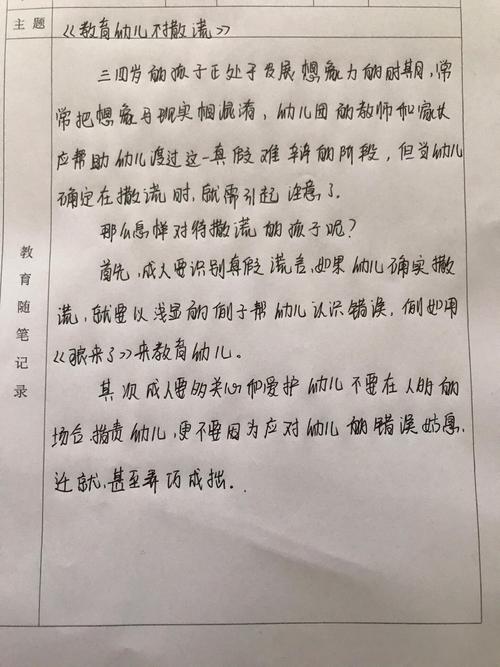 主题
《教育幼儿不撒谎》
三四岁的孩子正处于发展想象力的时期,常
常把想象与现实相混淆,幼儿园的教师和家长
应帮助幼儿渡过这一真假难辨的阶段,但当幼儿
确定在撒谎时,就需引起注意了。
那么怎样对待撒谎的孩子呢?
首先,成人要识别真假谎言,如果幼儿确实撒
谎,就要以浅显的例子帮幼儿认识错误,例如用
《狼来了》来教育幼儿。
其次成人要多关心和爱护幼儿不要在人多的
场合指责幼儿,更不要因为应对幼儿的错误姑息,
迁就,甚至弄巧成拙.
教育随笔记录